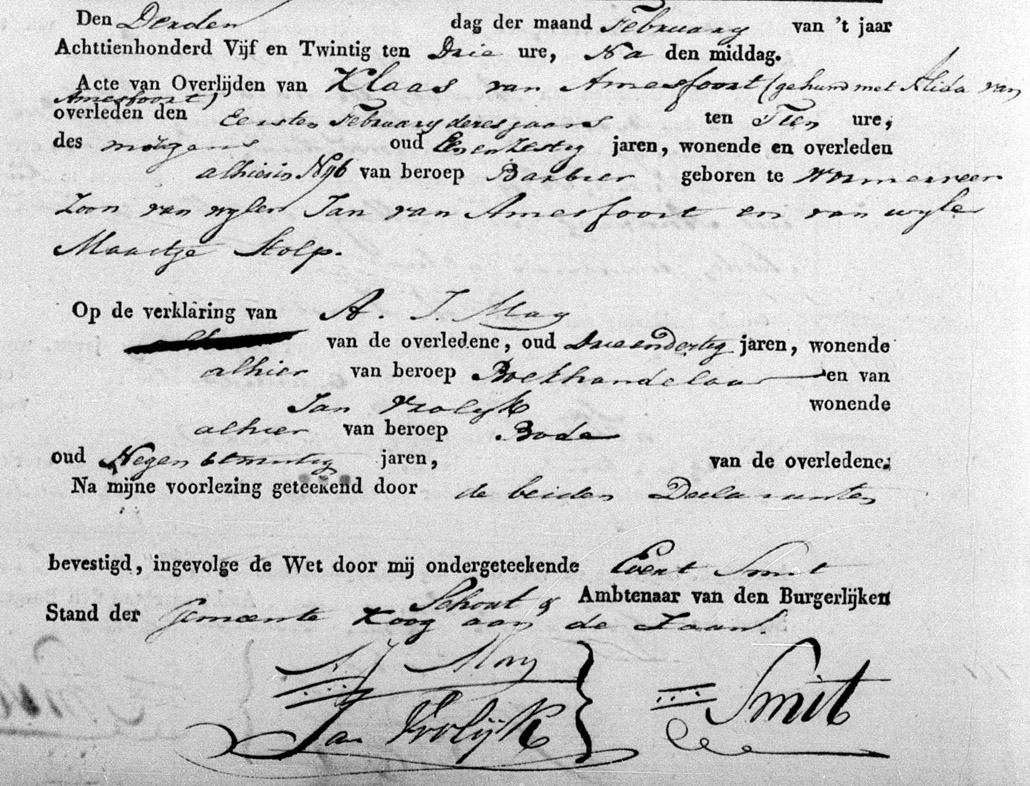 Den Derden dag der maand February van 't jaar
Achttienhonderd Vijf en Twintig ten Drie ure, Na den middag.
Acte van Overlijden van Klaas van Amesfoort (gehuwd met Alida van
Amesfoort)
overleden den Eersten February dezes jaars ten Tien ure,
des morgens oud Eenenzestig jaren, wonende en overleden
alhier in No 96 van beroep Barbier geboren te Wormerveer
Zoon van wylen Jan van Amesfoort en van wyle
Maartje Stolp.
Op de verklaring van A. J. May
van de overledene, oud Drieendertig jaren, wonende
alhier van beroep Boekhandelaar en van
Jan Vrolyk wonende
alhier van beroep Bode
oud Negen entwintig jaren, van de overledene;
Na mijne voorlezing geteekend door de beiden Declaranten
bevestigd, ingevolge de Wet door mij ondergeteekende Evert Smit
Schout & Ambtenaar van den Burgerlijken
Stand der Gemeente Koog aan de Zaan.
A J May
Jan Vrolijk
Smit